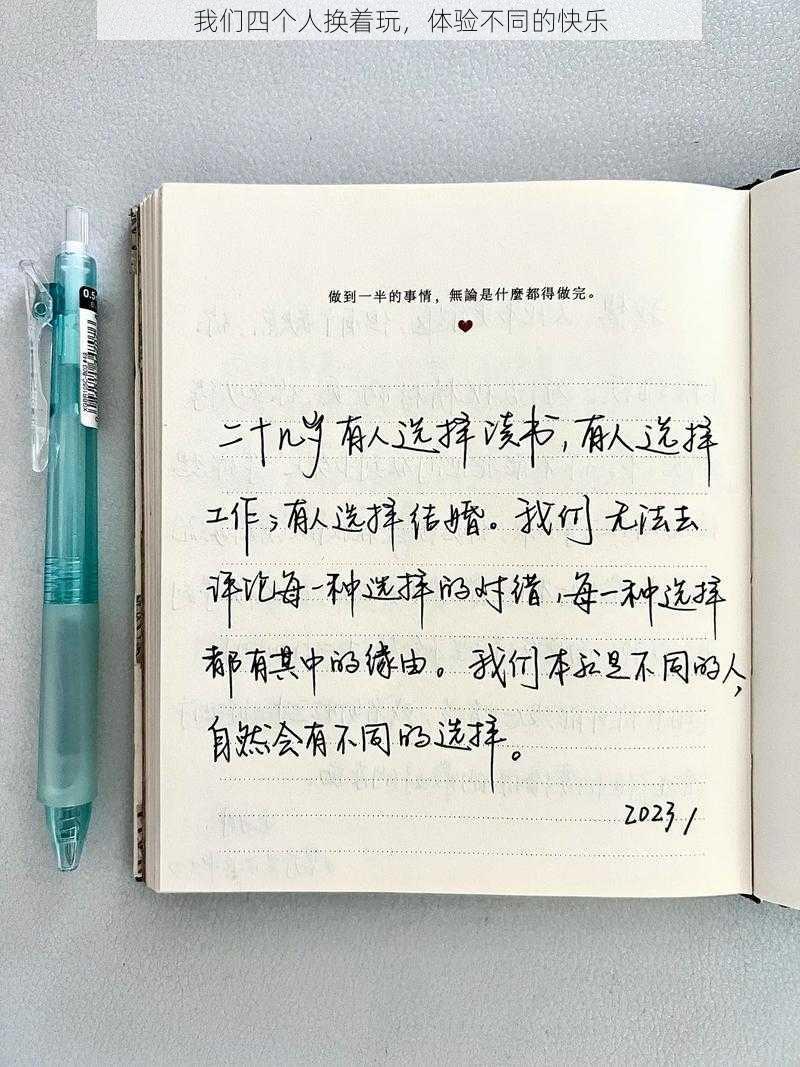 我们四个人换着玩，体验不同的快乐
做到一半的事情，無論是什麼都得做完。
二十几岁有人选择读书，有人选择
工作；有人选择结婚。我们无法去
评论每一种选择的对错，每一种选择
都有其中的缘由。我们本就是不同的人，
自然会有不同的选择。
2023 /
0.5